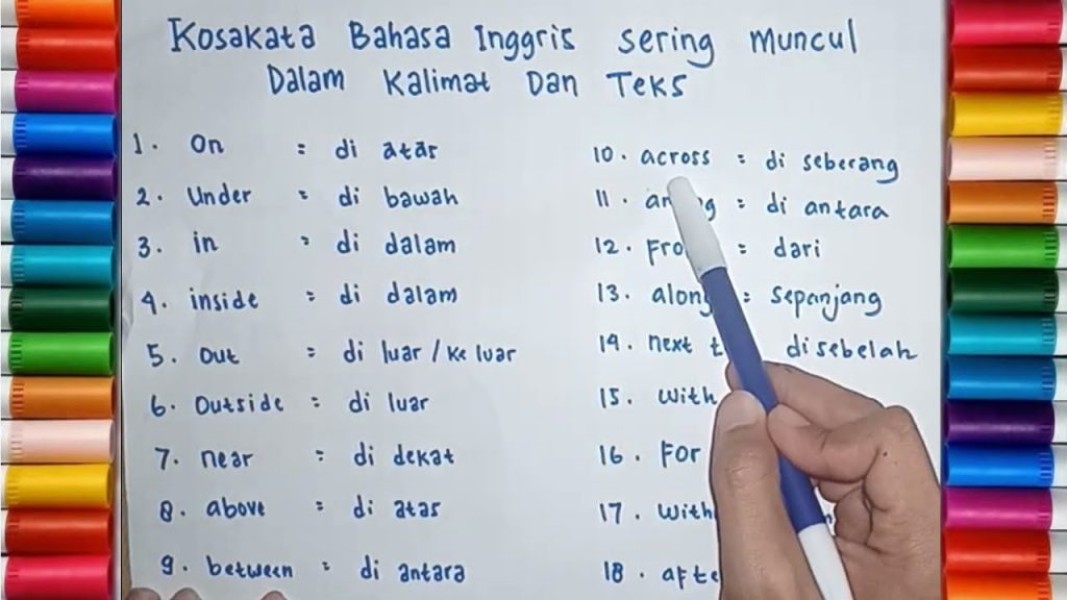 Kosakata Bahasa Inggris Sering Muncul
Dalam Kalimat Dan Teks
1. On = di atas
2. Under = di bawah
3. in = di dalam
4. inside = di dalam
5. Out = di luar / ke luar
6. Outside = di luar
7. near = di dekat
8. above = di atas
9. between = di antara
10. across = di seberang
11. = di antara
12. = dari
13. along = sepanjang
14. next disebelah
15. With
16. For
17.
18.